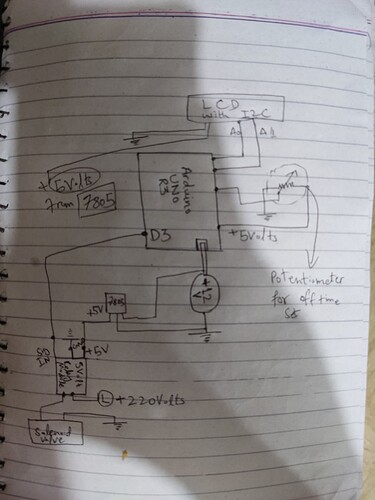 LCD
with I2C
A4
+5Volts
from 7805
Arduino
UNO
R3
D3
+5Volts
Potentiometer
for off time
Set
+5V
7805
+12
V
+5V
5V
Relay
L +220Volts
Solenoid
Valve